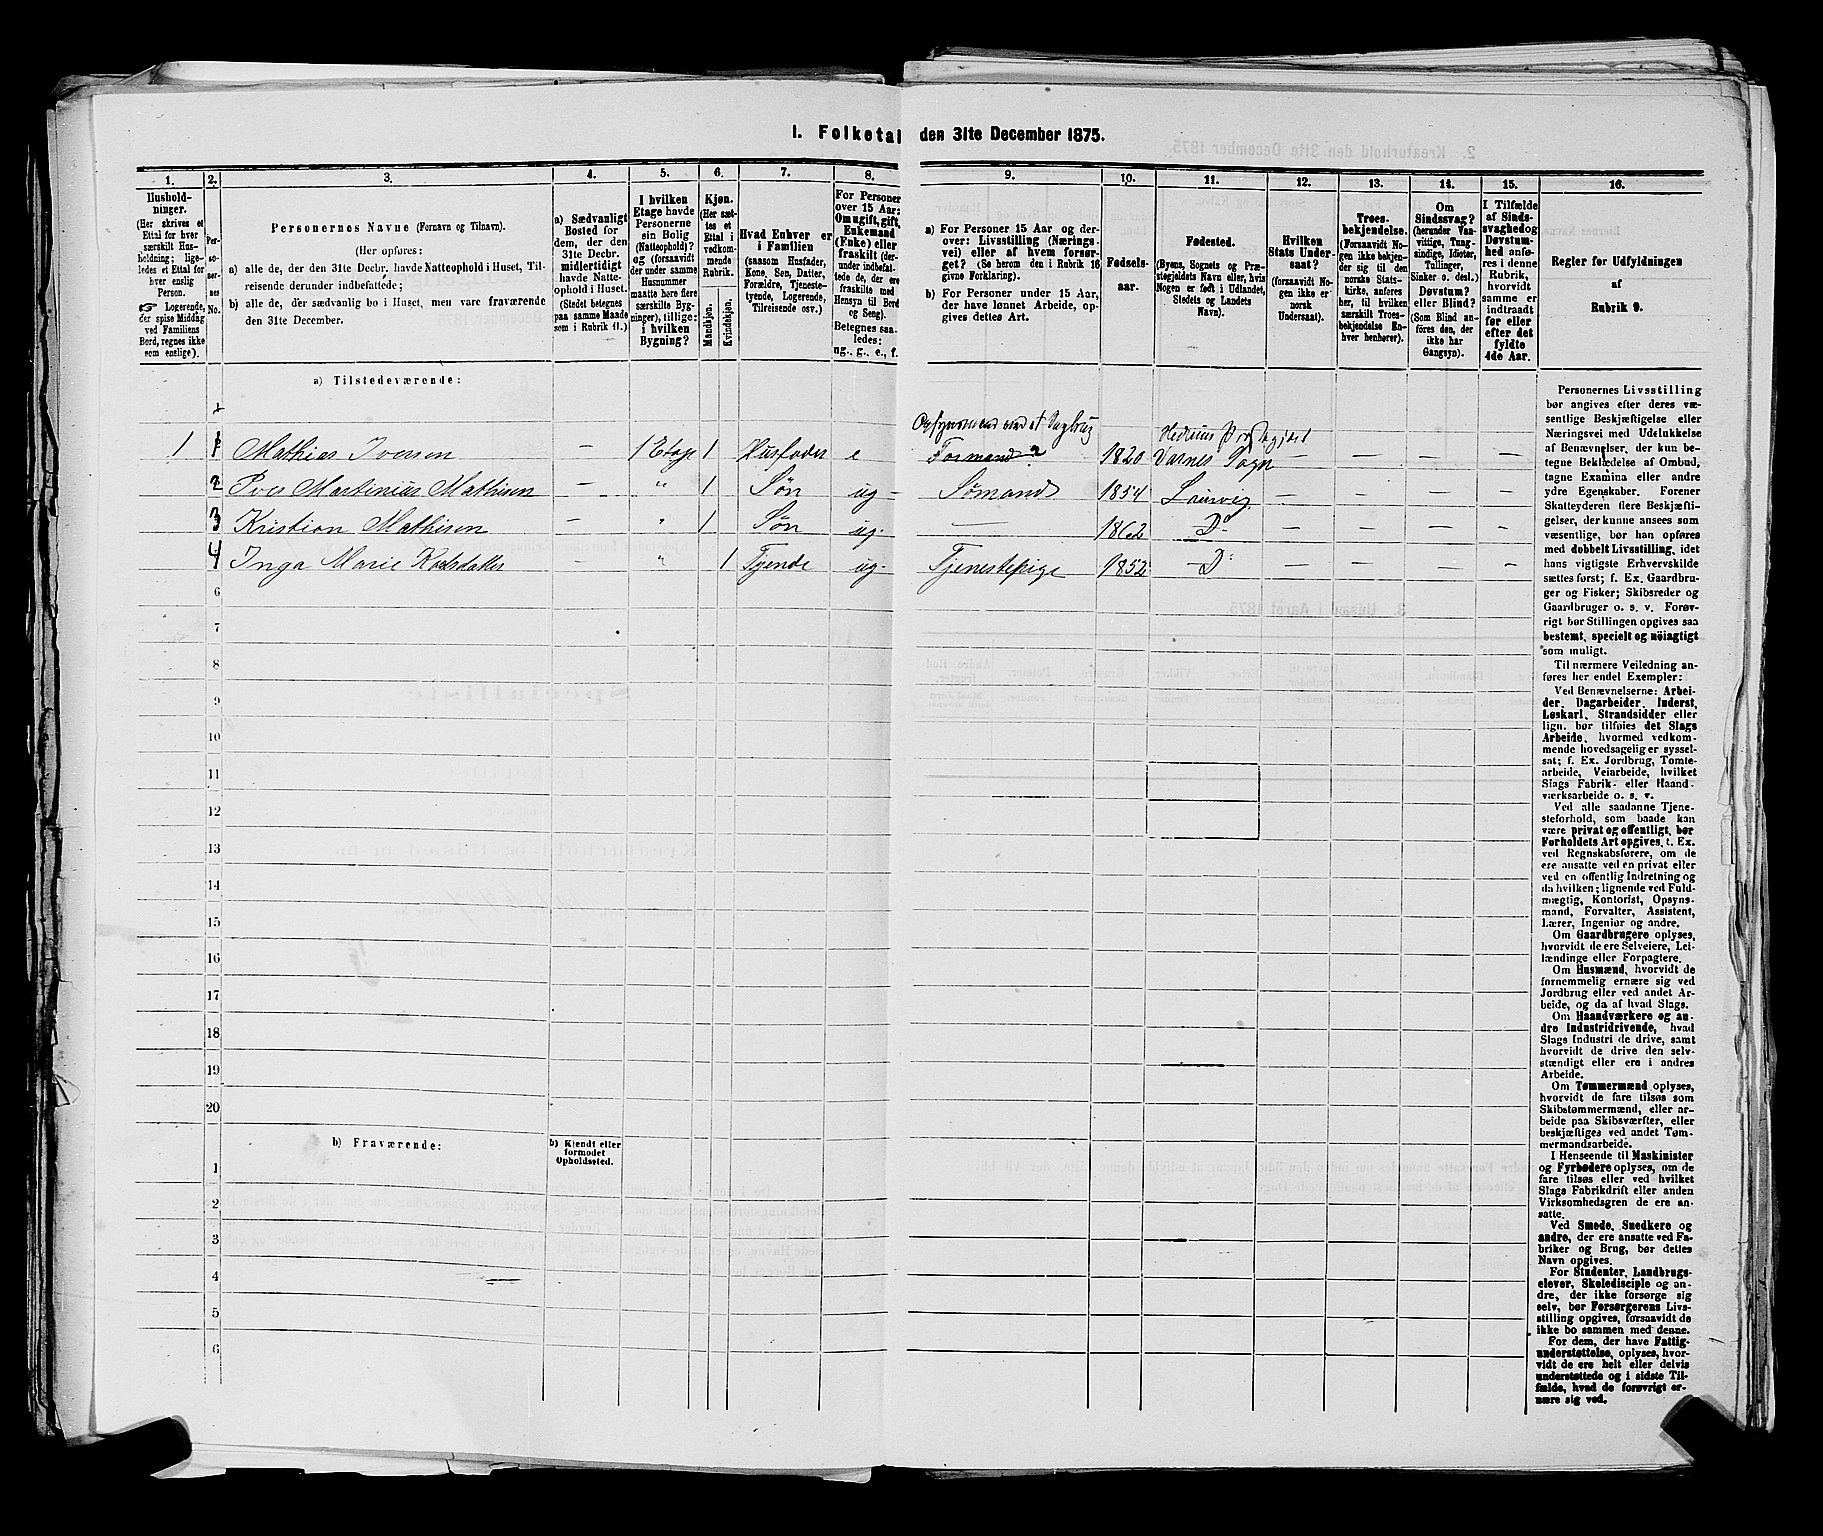 I. Folketal den 31te December 1875.
1. 2. 3. 4. 5. 6. 7. 8. 9. 10. 11. 12. 13. 14. 15. 16.
Hushold-
ninger.
(Her skrives et
Ettal for hver
særskilt Hus-
holdning; lige-
ledes et Ettal for
hver enslig
Person.
☞ Logerende,
der spise Middag
ved Familiens
Bord, regnes ikke
som enslige).
Per-
so-
ner-
nes
No.
Personernes Navne (Fornavn og Tilnavn).
(Her opføres:
a) alle de, der den 31te Decbr. havde Natteophold i Huset, Til-
reisende derunder indbefattede;
b) alle de, der sædvanlig bo i Huset, men vare fraværende
den 31te December.
a) Sædvanligt
Bosted for
dem, der den
31te Decbr.
midlertidigt
havde Natte-
ophold i Huset.
(Stedet betegnes
paa samme Maade
som i Rubrik 11.)
I hvilken
Etage havde
Personerne
sin Bolig
(Natteophold)?
og (forsaavidt
der under samme
Husnummer
maatte høre flere
særskilte Byg-
ninger), tillige:
i hvilken
Bygning?
Kjøn.
(Her sæt-
tes et
Ettal i
vedkom-
mende
Rubrik.
Mandkjøn.
Kvindekjøn.
Hvad Enhver er
i Familien
(saasom Husfader,
Kone, Søn, Datter,
Forældre, Tjeneste-
tyende, Logerende,
Tilreisende osv.)
For Personer
over 15 Aar:
Om ugift, gift,
Enkemand
(Enke) eller
fraskilt (der-
under indbefat-
tede de, der ere
fraskilte med
Hensyn til Bord
og Seng).
Betegnes saa-
ledes:
ug., g., e., f.
a) For Personer 15 Aar og der-
over: Livsstilling (Nærings-
vei) eller af hvem forsør-
get? (Se herom den i Rubrik 16
givne Forklaring).
b) For Personer under 15 Aar,
der have lønnet Arbeide, op-
gives dettes Art.
Fødsels-
aar.
Fødested.
(Byens, Sognets og Præ-
stegjeldets Navn eller, hvis
Nogen er født i Udlandet,
Stedets og Landets
Navn).
Hvilken
Stats Under-
saat?
(forsaavidt No-
gen ikke er
norsk
Undersaat).
Troes-
bekjendelse.
(Forsaavidt No-
gen ikke bekjen-
der sig til den
norske Stats-
kirke, anføres
her, til hvilken
særskilt Troes-
bekjendelse En-
hver henhører).
Om
Sindssvag?
(herunder Van-
vittige, Tung-
sindige, Idioter,
Tullinger,
Sinker o. desl.)
Døvstum?
eller Blind?
(Som Blind an-
føres den, der
ikke har
Gangsyn).
I Tilfælde
af Sinds-
svaghed og
Døvstum-
hed anfø-
res i denne
Rubrik,
hvorvidt
samme er
indtraadt
før eller
efter det
fyldte
4de Aar.
Regler for Udfyldningen
af
Rubrik 9.
a) Tilstedeværende:
Opsynsmand ved et Dagbrug
1 1 Mathias Iversen – 1 Etage 1 Husfader e Formand 1820 Varnes Sogn – – – –
2 Iver Martinius Mathisen – " 1 Søn ug – Sømand 1854 Laurvig – – – –
3 Kristian Mathisen – " 1 Søn ug. – 1862 – Do – – – – –
4 Inga Marie – " 1 Tjende ug. Tjenestepige 1852 – Do – – – – –
6
7
8
9
10
11
12
13
14
15
16
17
18
19
20
b) Fraværende:
b) Kjendt eller
formodet
Opholdssted.
1
2
3
4
5
6
Personernes Livsstilling
bør angives efter deres væ-
sentlige Beskjæftigelse eller
Næringsvei med Udelukkelse
af Benævnelser, der kun be-
tegne Beklædelse af Ombud,
tagne Examina eller andre
ydre Egenskaber. Forener
Skatteyderen flere Beskjæfti-
gelser, der kunne ansees som
væsentlige, bør han opføres
med dobbelt Livsstilling, idet
hans vigtigste Erhvervskilde
sættes først; f. Ex. Gaardbru-
ger og Fisker; Skibsreder og
Gaardbruger o. s. v. Forøv-
rigt bør Stillingen opgives saa
bestemt, specielt og nøiagtigt
som muligt.
Til nærmere Veiledning an-
føres her endel Exempler:
Ved Benævnelserne: Arbei-
der, Dagarbeider, Inderst,
Løskarl, Strandsidder eller
lign. bør tilføies det Slags
Arbeide, hvormed vedkom-
mende hovedsagelig er syssel-
sat; f. Ex. Jordbrug, Tomte-
arbeide, Veiarbeide, hvilket
Slags Fabrik- eller Haand-
værksarbeide o. s. v.
Ved alle saadanne Tjene-
steforhold, som baade kan
være privat og offentligt, bør
Forholdets Art opgives, t. Ex.
ved Regnskabsførere, om de
ere ansatte ved en privat eller
ved en offentlig Indretning og
da hvilken; lignende ved Fuld-
mægtig, Kontorist, Opsyns-
mand, Forvalter, Assistent,
Lærer, Ingeniør og andre.
Om Gaardbrugere oplyses,
hvorvidt de ere Selveiere, Lei-
lændinge eller Forpagtere.
Om Husmænd, hvorvidt de
fornemmelig ernære sig ved
Jordbrug eller ved andet Ar-
beide, og da af hvad Slags.
Om Haandværkere og an-
dre Industridrivende, hvad
Slags Industri de drive, samt
hvorvidt de drive den selv-
stændigt eller ere i andres
Arbeide.
Om Tømmermænd oplyses,
hvorvidt de fare tilsøs som
Skibstømmermænd, eller ar-
beide paa Skibsværfter, eller
beskjæftiges ved andet Tøm-
mermandsarbeide.
I Henseende til Maskinister
og Fyrbødere oplyses, om de
fare tilsøs eller ved hvilket
Slags Fabrikdrift eller anden
Virksomhedsgren de ere an-
satte.
Ved Smede, Snedkere og
andre, der ere ansatte ved Fa-
briker og Brug, bør dettes
Navn opgives.
For Studenter, Landbrugs-
elever, Skoledisciple og an-
dre, der ikke forsørge sig
selv, bør Forsørgerens Livs-
stilling opgives, forsaavidt de
ikke bo sammen med denne.
For dem, der have Fattig-
understøttelse, oplyses, hvor-
vidt de ere helt eller delvis
understøttede og i sidste Til-
fælde, hvad de forøvrigt er-
nære sig ved.